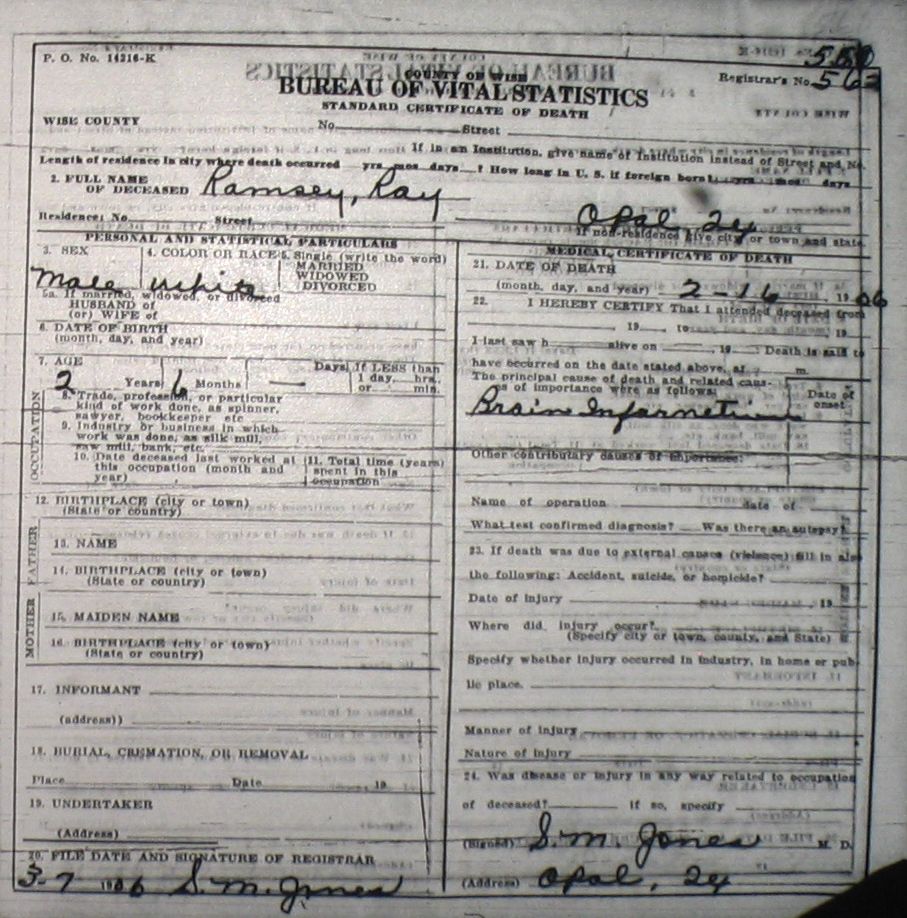 P. O. No. 14216-K
550
Registrar's No. 563
COUNTY OF WISE
BUREAU OF VITAL STATISTICS
STANDARD CERTIFICATE OF DEATH
WISE COUNTY No. Street
If in an Institution, give name of Institution instead of Street and No.
Length of residence in city where death occurred yrs mos days ? How long in U. S. if foreign born? yrs mos days
2. FULL NAME
OF DECEASED Ramsey, Ray
Residence: No. Street Opal, Tex
If non-residence give city or town and state.
PERSONAL AND STATISTICAL PARTICULARS
3. SEX 4. COLOR OR RACE 5. Single (write the word)
MARRIED
WIDOWED
DIVORCED
Male White
5a. If married, widowed, or divorced
HUSBAND of
(or) WIFE of
6. DATE OF BIRTH
(month, day, and year)
7. AGE Days If LESS than
2 Years 6 Months — 1 day, hrs.
or min.
OCCUPATION
8. Trade, profession, or particular
kind of work done, as spinner,
sawyer, bookkeeper etc
9. Industry or business in which
work was done, as silk mill,
saw mill, bank, etc.
10. Date deceased last worked at
this occupation (month and
year)
11. Total time (years)
spent in this
occupation
12. BIRTHPLACE (city or town)
(State or country)
FATHER
13. NAME
14. BIRTHPLACE (city or town)
(State or country)
MOTHER
15. MAIDEN NAME
16. BIRTHPLACE (city or town)
(State or country)
17. INFORMANT
(address))
18. BURIAL, CREMATION, OR REMOVAL
Place Date 19
19. UNDERTAKER
(Address)
20. FILE DATE AND SIGNATURE OF REGISTRAR
3-7 1906 S. M. Jones
MEDICAL CERTIFICATE OF DEATH
21. DATE OF DEATH
(month, day, and year) 2-16, 1906
22. I HEREBY CERTIFY That I attended deceased from
19 , to , 19
I last saw h alive on , 19 Death is said to
have occurred on the date stated above, at m.
The principal cause of death and related caus-
es of importance were as follows Date of
onset
Brain
Other contributory causes of importance:
Name of operation date of
What test confirmed diagnosis? Was there an autopsy?
23. If death was due to external causes (violence) fill in also
the following: Accident, suicide, or homicide?
Date of injury , 19
Where did injury occur?
(Specify city or town, county, and State)
Specify whether injury occurred in industry, in home or pub-
lic place.
Manner of injury
Nature of injury
24. Was disease or injury in any way related to occupation
of deceased? If so, specify
(Signed) S. M. Jones M. D.
(Address) Opal, Tex